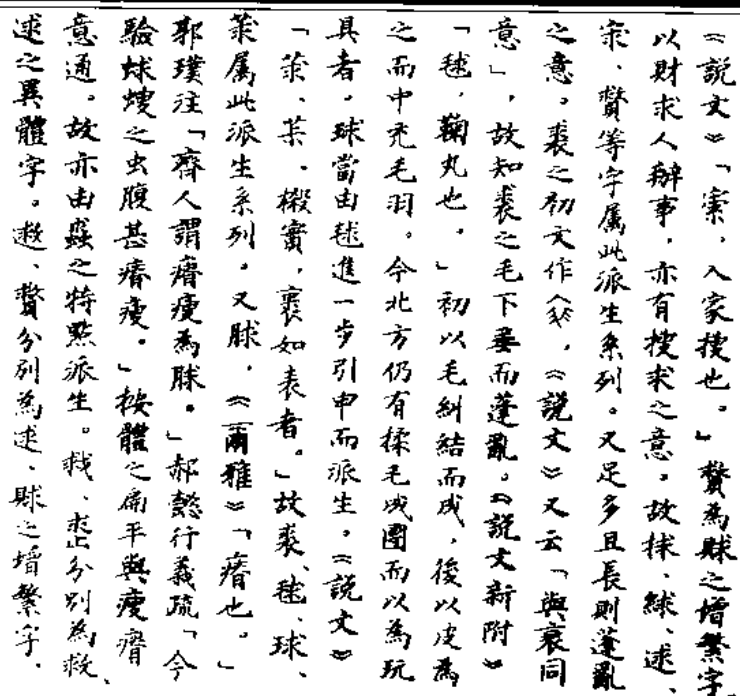 《說文》「㝛，入家搜也。」賕為賕之增繁字，
以財求人辦事，亦有搜求之意。故捄、絿、逑、
㝛、賕等字屬此派生系列。又足多且長則蓬亂
之意。裘之初文作，《說文》又云「與衰同
意」，故知裘之毛下垂而蓬亂。《說文新附》
「毬，鞠丸也。」初以毛糾結而成，後以皮為
之而中充毛羽。今北方仍有揉毛成團而以為玩
具者，球當由毬進一步引申而派生。《說文》
「莍，茮、樧實，裹如表者。」故裘、毬、球、
莍屬此派生系列。又脙，《爾雅》「瘠也。」
郭璞注「齊人謂瘠瘦為脙。」郝懿行義疏「今
驗蛷螋之虫腹甚瘠瘦。」按體之扁平與瘦瘠
意通。故亦由蟲之特點派生。㪈、恘分別為救、
逑之異體字。逑、賕分別為逑、賕之增繁字。